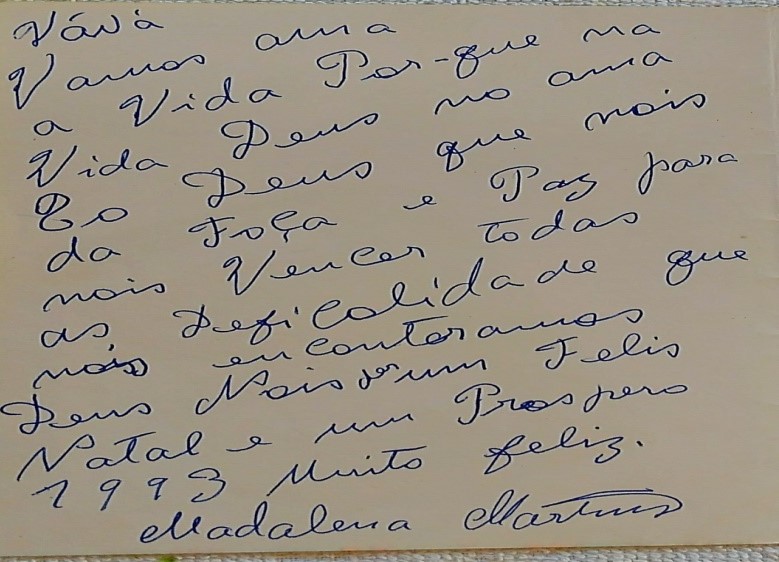 Vává
Vamos ama
a Vida Por-que na
Vida Deus no ama
Eo Deus que nois
da Foça e Paz para
nois Vencer todas
as Deficolidade que
nois encontoramos
Deus Nois um Felis
Natal e um Prospero
1993 Muito feliz.
Madalena Martins